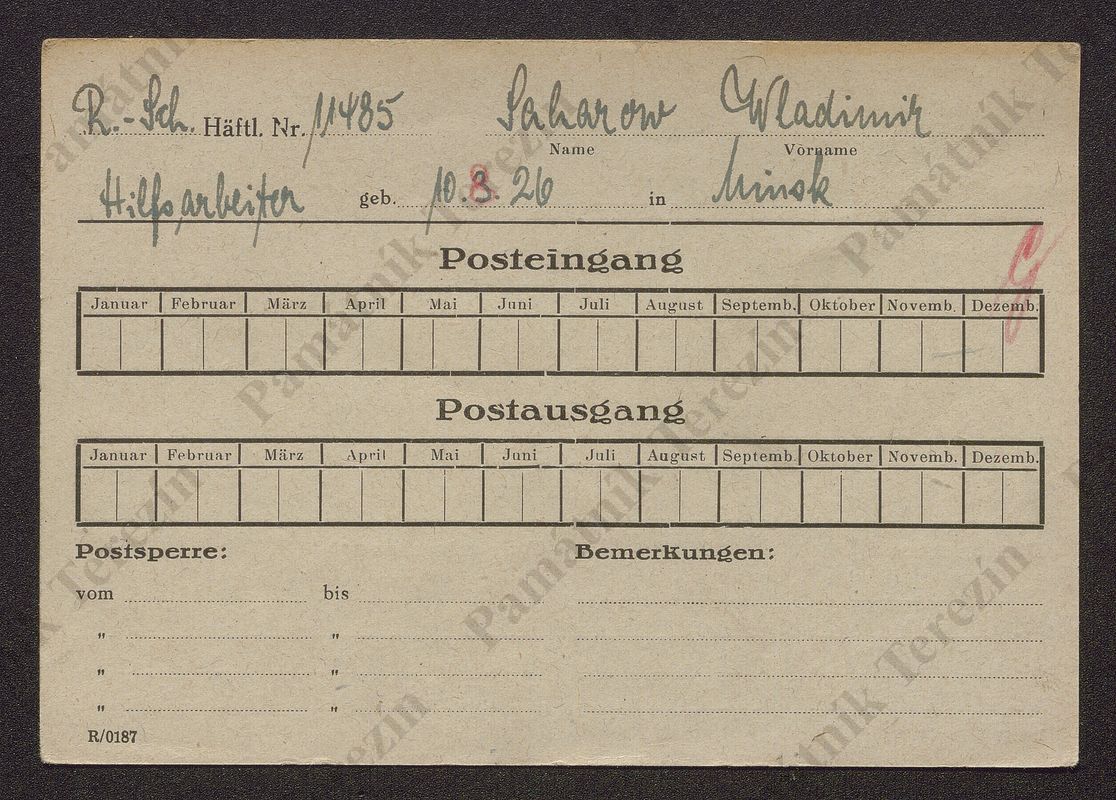 R.-Sch. Häftl. Nr. 11485 Saharow Wladimir
Name Vorname
Hilfsarbeiter geb. 10.8.26 in Minsk
Posteingang
Januar Februar März April Mai Juni Juli August Septemb. Oktober Novemb. Dezemb.
Postausgang
Januar Februar März April Mai Juni Juli August Septemb. Oktober Novemb. Dezemb.
Postsperre: Bemerkungen:
vom bis
" "
" "
" "
R/0187
Památník Terezín